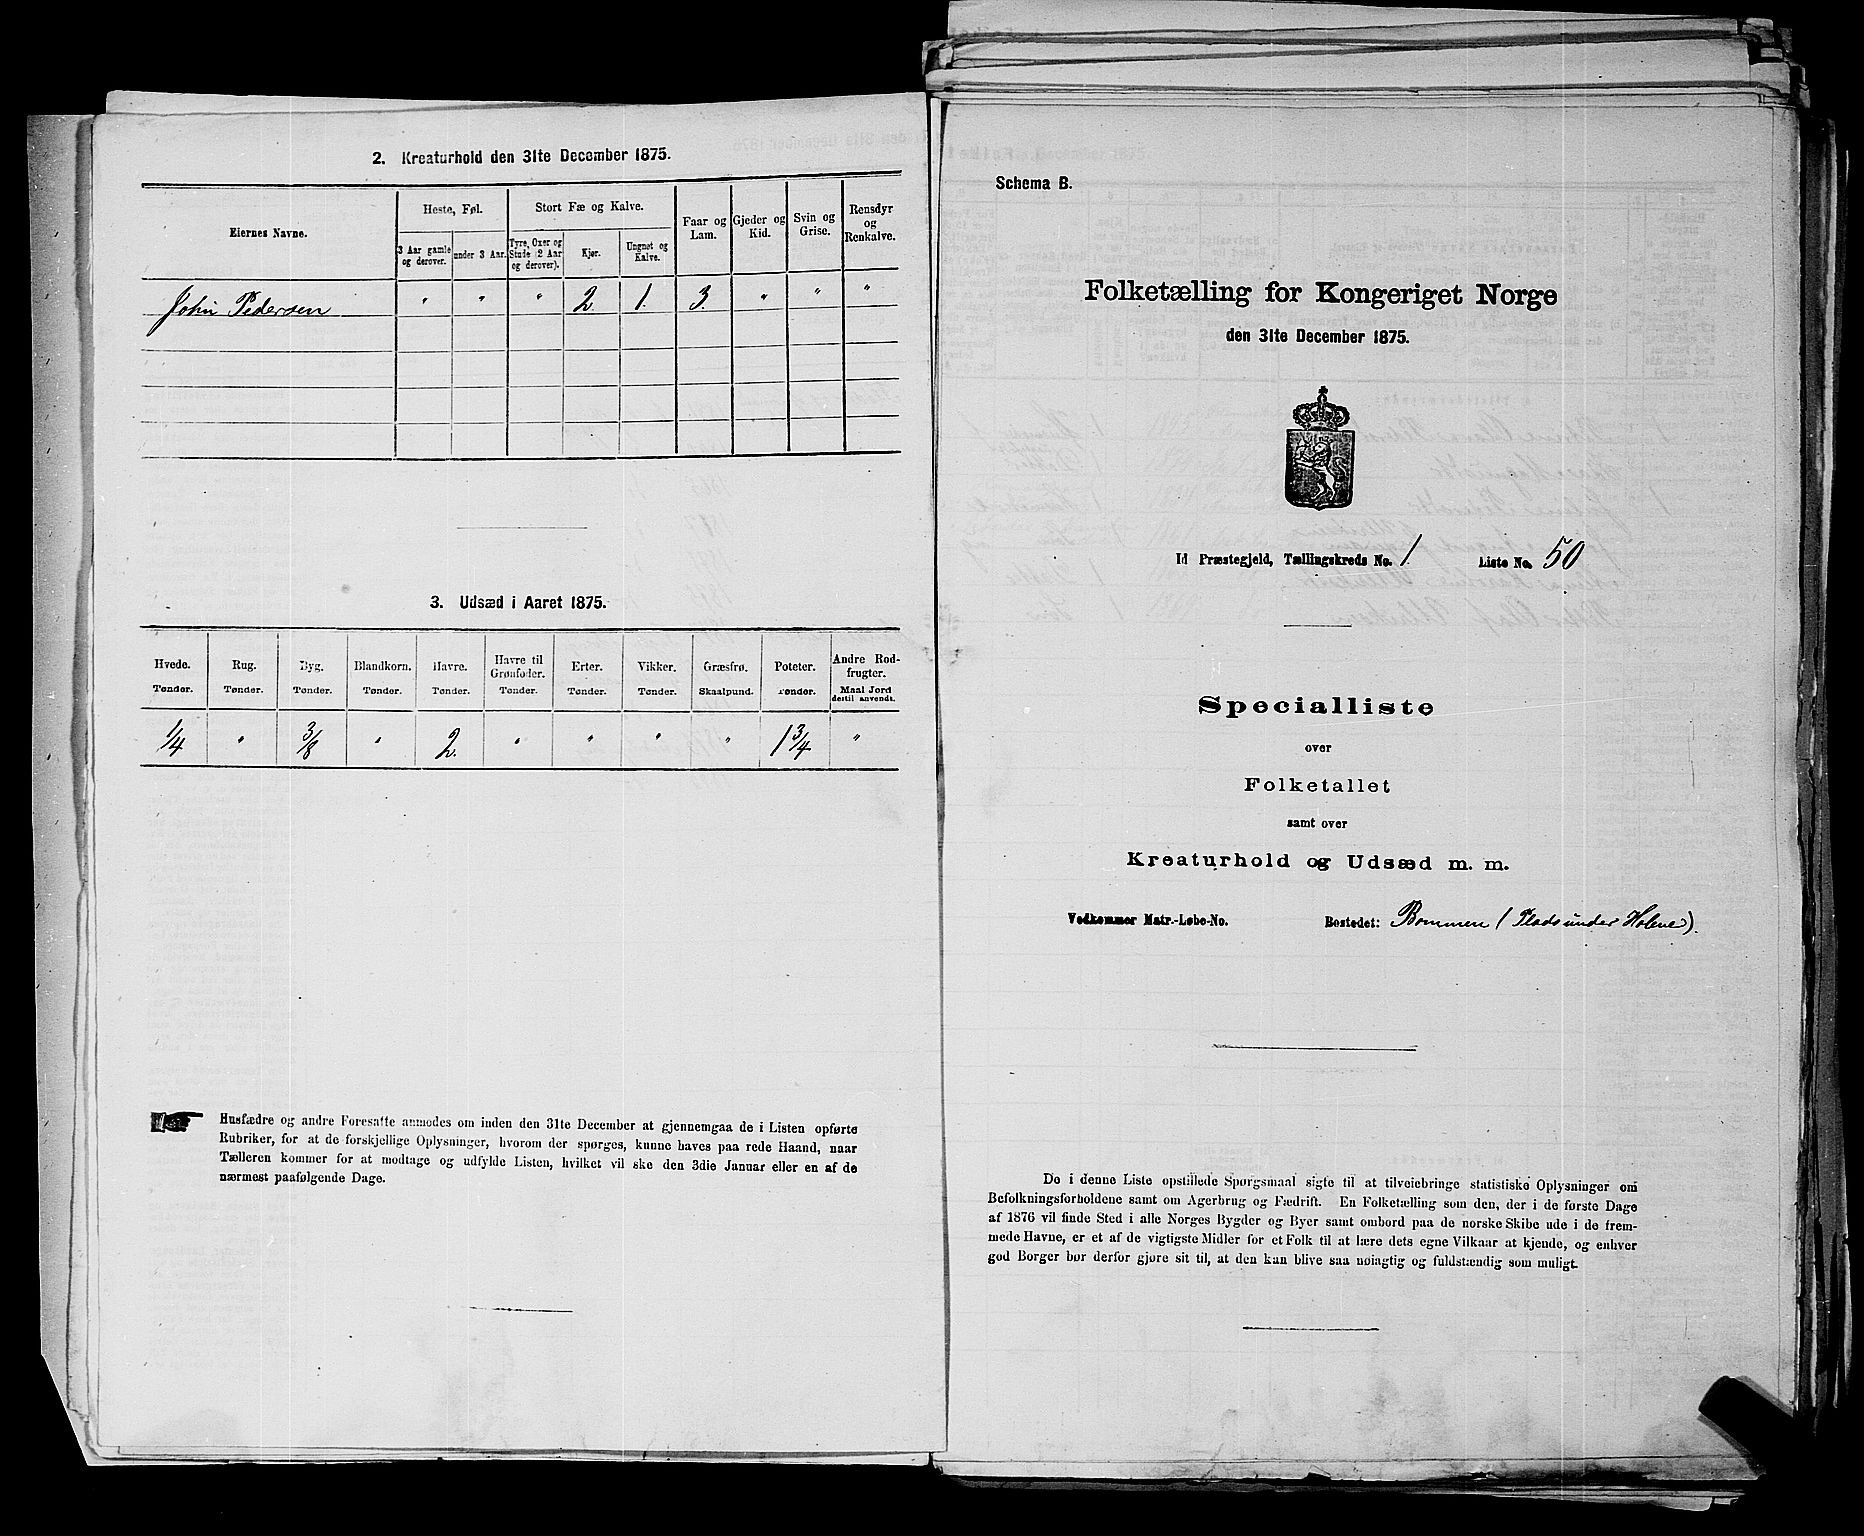 2. Kreaturhold den 31te December 1875.
Eiernes Navne.
Heste, Føl.
Stort Fæ og Kalve.
Faar og Lam.
Gjeder og Kid.
Svin og Grise.
Rensdyr og Renkalve.
3 Aar gamle og derover.
under 3 Aar.
Tyre, Oxer og Stude (2 Aar og derover).
Kjør.
Ungnøt og Kalve.
John Pedersen " " " 2. 1. 3. " " "
3. Udsæd i Aaret 1875.
Hvede. Rug. Byg. Blandkorn. Havre. Havre til Grønfoder. Erter. Vikker. Græsfrø. Poteter. Andre Rodfrugter.
Tønder. Tønder. Tønder. Tønder. Tønder. Tønder. Tønder. Tønder. Skaalpund. Tønder. Maal Jord dertil anvendt.
1/4 " 3/8 " 2. " " " " 1 3/4 "
Husfædre og andre Foresatte anmodes om inden den 31te December at gjennemgaa de i Listen opførte
Rubriker, for at de forskjellige Oplysninger, hvorom der spørges, kunne haves paa rede Haand, naar
Tælleren kommer for at modtage og udfylde Listen, hvilket vil ske den 3die Januar eller en af de
nærmest paafølgende Dage.
Schema B.
Folketælling for Kongeriget Norge
den 31te December 1875.
Id Præstegjeld, Tællingskreds No. 1 Liste No. 50
Specialliste
over
Folketallet
samt over
Kreaturhold og Udsæd m. m.
Vedkommer Matr.-Løbe-No. Bostedet: Bommen (Plads under Holene).
De i denne Liste opstillede Spørgsmaal sigte til at tilveiebringe statistiske Oplysninger om
Befolkningsforholdene samt om Agerbrug og Fædrift. En Folketælling som den, der i de første Dage
af 1876 vil finde Sted i alle Norges Bygder og Byer samt ombord paa de norske Skibe ude i de frem-
mede Havne, er et af de vigtigste Midler for et Folk til at lære dets egne Vilkaar at kjende, og enhver
god Borger bør derfor gjøre sit til, at den kan blive saa nøiagtig og fuldstændig som muligt.